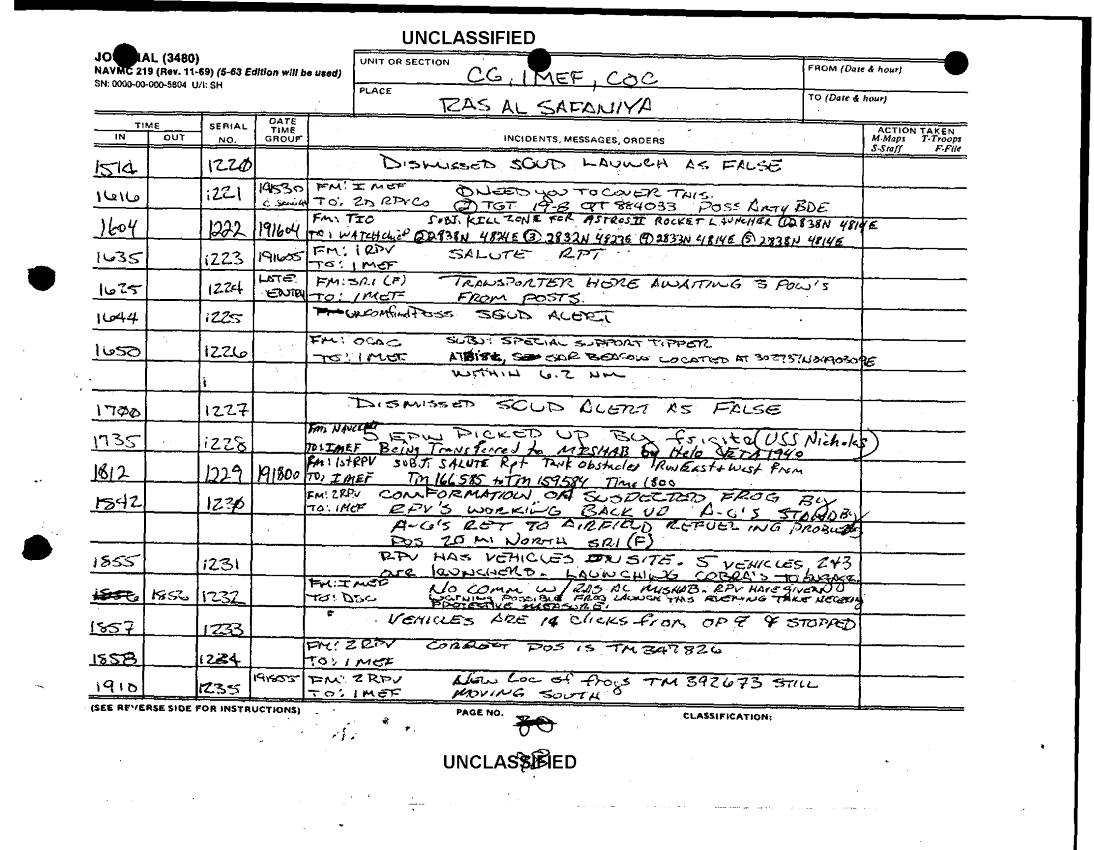 UNCLASSIFIED
JOURNAL (3480)
NAVMC 219 (Rev. 11-69) (5-63 Edition will be used)
SN: 0000-00-000-5804 U/I: SH
UNIT OR SECTION
CG, I MEF, COC
FROM (Date & hour)
PLACE
RAS AL SAFANIYA
TO (Date & hour)
TIME
IN OUT
SERIAL NO.
DATE TIME GROUP
INCIDENTS, MESSAGES, ORDERS
ACTION TAKEN
M-Maps T-Troops
S-Staff F-File
1514 1220 DISMISSED SCUD LAUNCH AS FALSE
1616 1221 191530 FM: I MEF ① NEED YOU TO COVER THIS.
TO: 2D RPV CO ② TGT 19-B QT 884033 POSS ARTY BDE
1604 1222 191604 FM: TIO SUBJ. KILL ZONE FOR ASTROS II ROCKET LAUNCHER ① 2838N 4814E
TO: WATCH ② 2838N 4824E ③ 2832N 4823E ④ 2833N 4814E ⑤ 2838N 4814E
1635 1223 191605 FM: 1 RPV SALUTE RPT
TO: 1 MEF
1625 1224 LATE ENTRY FM: SRI (F) TRANSPORTER HERE AWAITING 3 POW'S
TO: 1 MEF FROM POSTS.
1644 1225 POSS SCUD ALERT
1650 1226 FM: OCAC SUBJ: SPECIAL SUPPORT TIPPER
TO: 1 MEF SAR BEACON LOCATED AT
WITHIN 6.2 NM
1700 1227 DISMISSED SCUD ALERT AS FALSE
1735 1228 FM: NAVCENT 5 EPW PICKED UP BY frigate (USS Nicholas)
TO: I MEF Being Transferred to MISHAB by Helo (ETA 1940
1812 1229 191800 FM: 1st RPV SUBJ: SALUTE Rpt Tank Obstacles Run East & West From
TO: I MEF TM 166585 to TM 159584 Time 1800
1842 1230 FM: 2RPV CONFORMATION ON SUSPECTED FROG BY
TO: 1MEF RPV'S WORKING BACK UP A-6'S STANDBY
A-6'S RET TO AIRFIELD REFUELING PROBLEM
POS 20 MI NORTH SRI (F)
1855 1231 RPV HAS VEHICLES ON SITE. 5 VEHICLES, 2 & 3
are LAUNCHERS. LAUNCHING COBRA'S TO ENGAGE.
1856 1232 FM: I MEF NO COMM W/ RAS AL MISHAB. RPV HAVE GIVEN
TO: DSC WARNING POSSIBLE FROG LAUNCH THIS EVENING TAKE
PROTECTIVE MEASURE.
1857 1233 VEHICLES ARE 14 CLICKS from OP 8 & STOPPED
1858 1234 FM: 2 RPV CORRECT POS IS TM 347826
TO: 1 MEF
1910 1235 191855 FM: 2 RPV New Loc of frogs TM 392673 STILL
TO: 1 MEF MOVING SOUTH
(SEE REVERSE SIDE FOR INSTRUCTIONS) PAGE NO. CLASSIFICATION:
UNCLASSIFIED